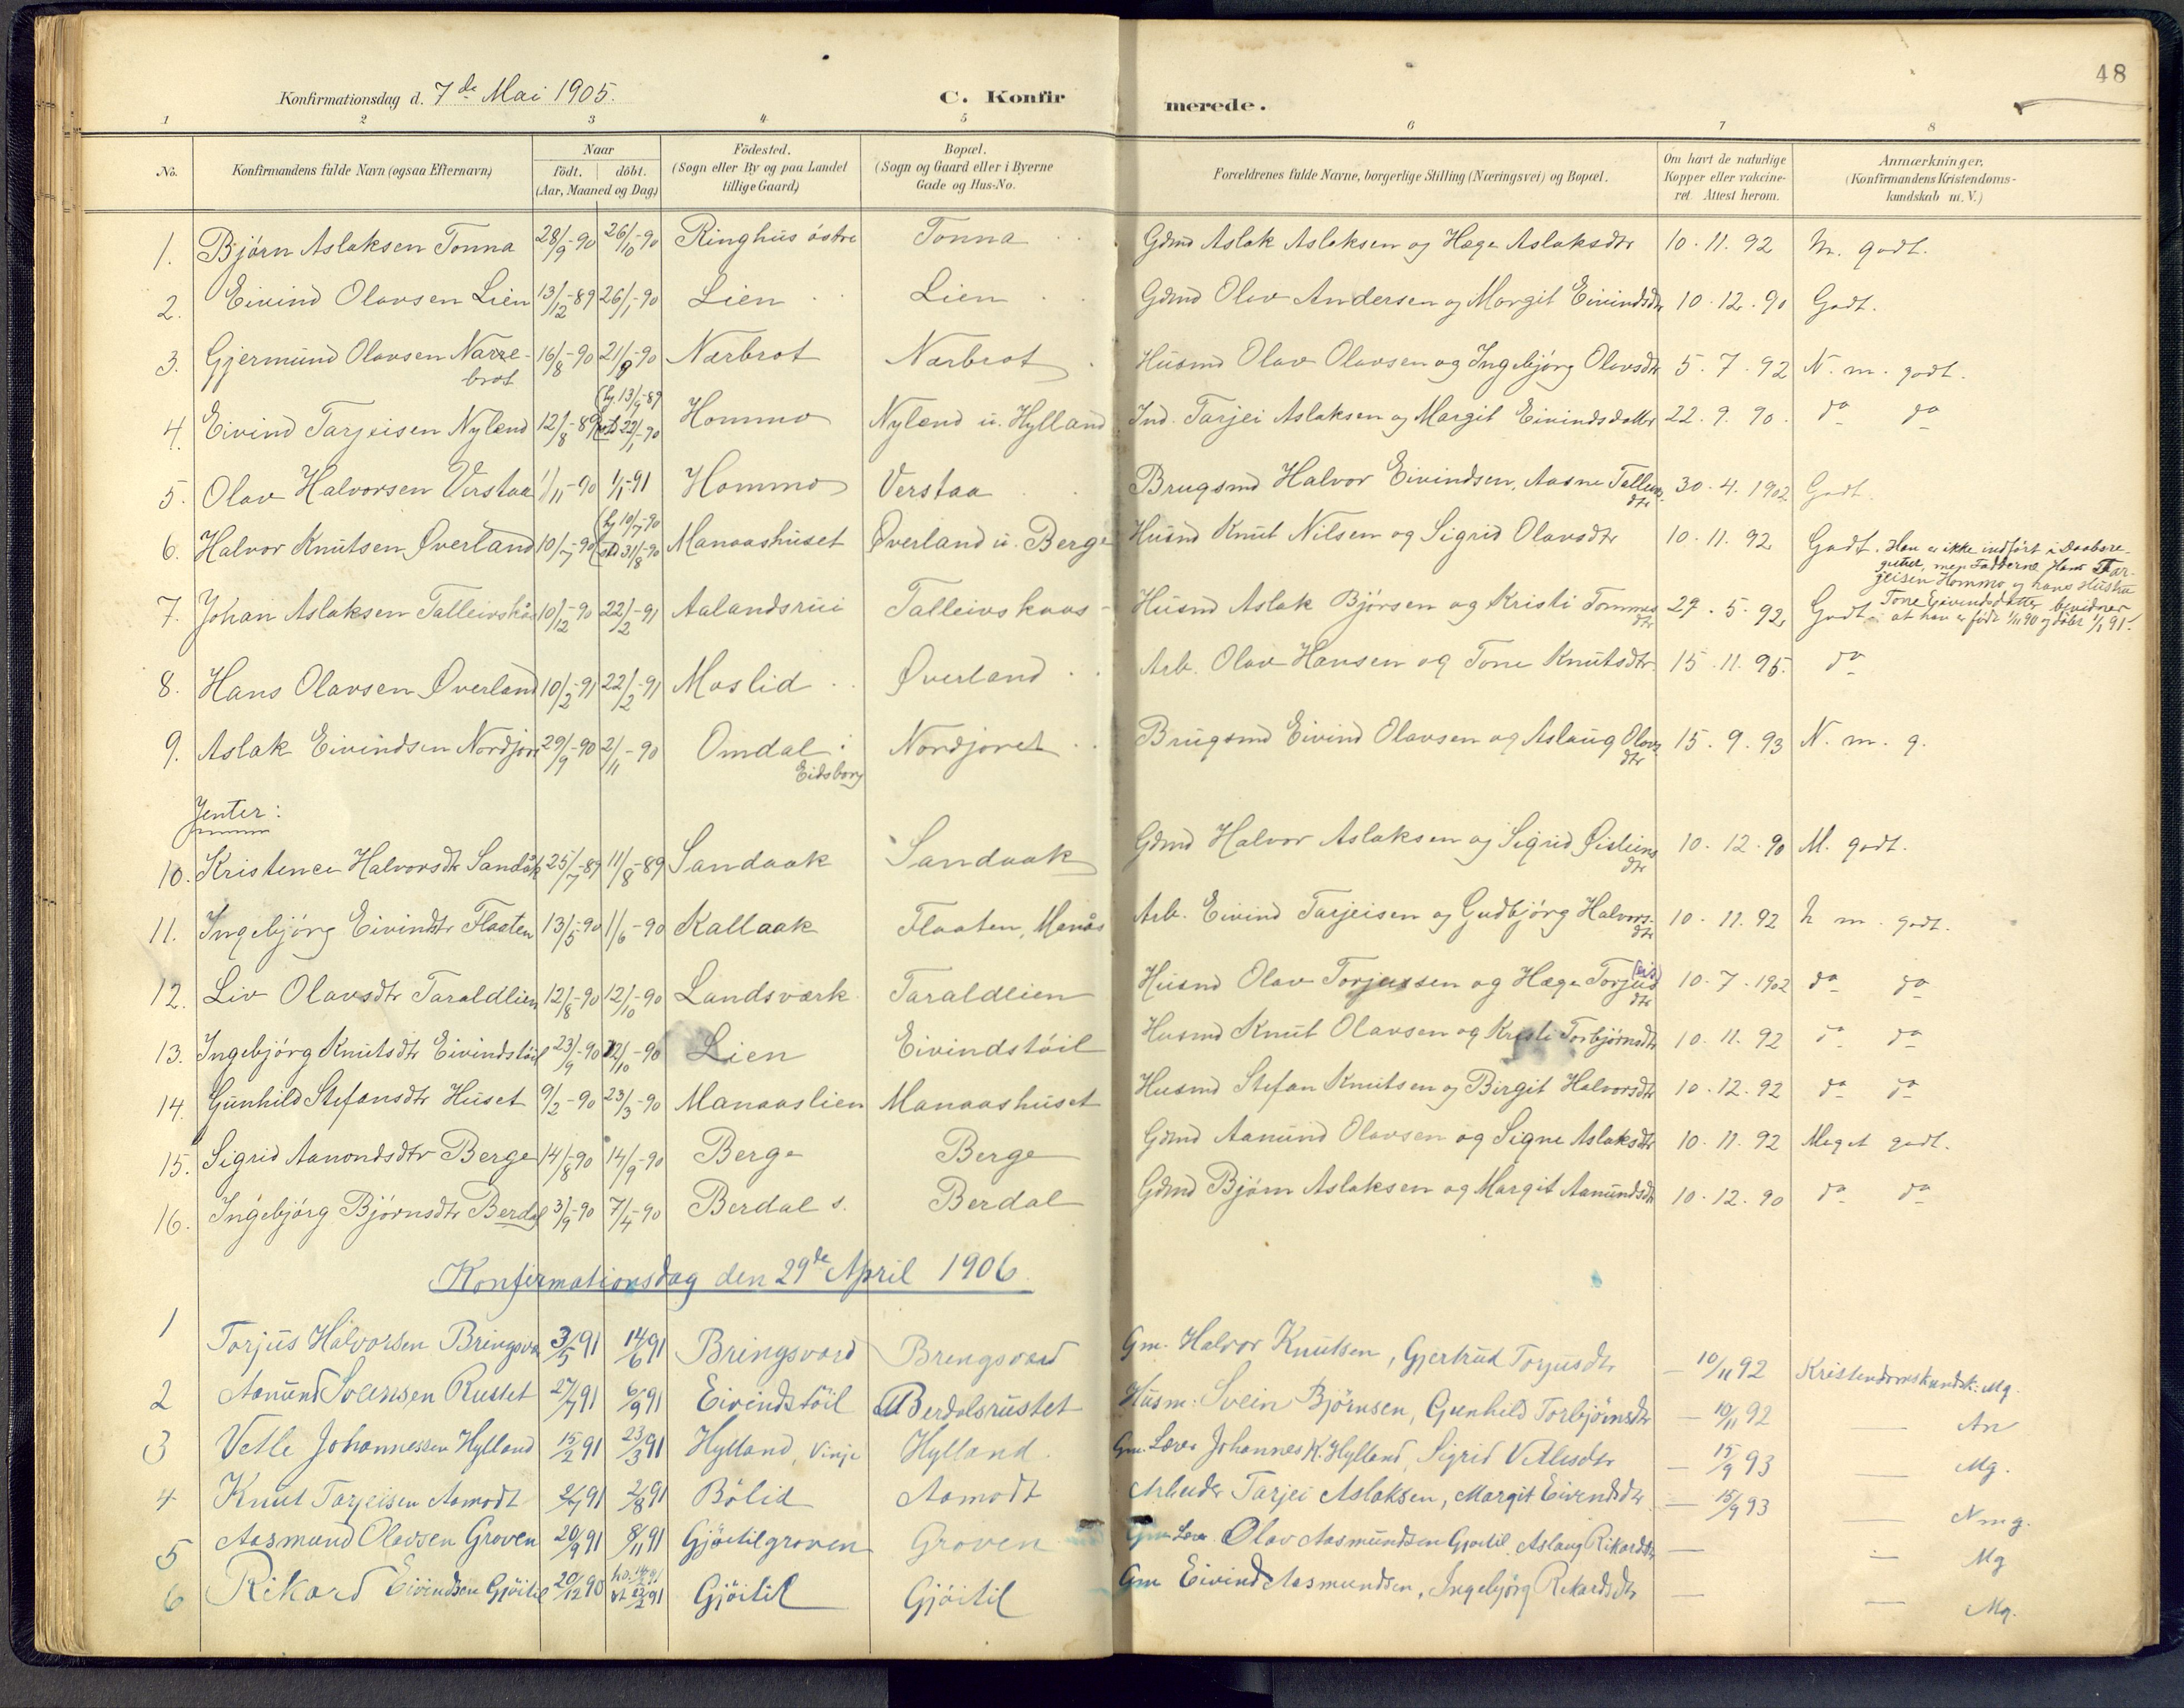 48
Konfirmationsdag d. 7de Mai 1905.
C. Konfirmerede.
1 2 3 4 5 6 7 8
No. Konfirmandens fulde Navn (ogsaa Efternavn) Naar født. døbt. (Aar, Maaned og Dag) Fødested. (Sogn eller By og paa Landet tillige Gaard) Bopæl. (Sogn og Gaard eller i Byerne Gade og Hus-No. Forældrenes fulde Navne, borgerlige Stilling (Næringsvei) og Bopæl. Om havt de naturlige Kopper eller vakcineret Attest herom. Anmærkninger. (Konfirmandens Kristendomskundskab m. V.)
1. Bjørn Aslaksen Tonna 28/9-90 26/10-90 Ringhus østre Tonna Gdmd Aslak Aslaksen og Hæge Aslaksdtr 10.11.92 M. godt.
2. Eivind Olavsen Lien 13/12-89 26/1-90 Lien Lien Gdmd Olav Andersen og Margit Eivindsdtr 10.12.90 Godt.
3. Gjermund Olavsen Narrebrot 16/8-90 21/9-90 Nærbrot Nærbrot Husmd Olav Olavsen og Ingebjørg Olavsdtr 5.7.92 N. m. godt.
4. Eivind Tarjeisen Nylend 12/8-89 (hj. 13/9-89 st. 22/1-90 Hommo Nylend u. Hylland Ind. Tarjei Aslaksen og Margit Eivindsdatter 22.9.90. do do
5. Olav Halvorsen Verstaa 1/11-90 1/1-91 Hommo Verstaa Brugsmd Halvor Eivindsen, Aasne Tallevsdtr 30.4.1902 Godt.
6. Halvor Knutsen Øverland 10/7-90 (hj 10/7-90 st 31/8-90 Manaashuset Øverland u. Berge Husmd Knut Nilsen og Sigrid Olavsdtr 10.11.92 Godt. Han er ikke indført i Daabsregistret, men Fadderne Hans Tarjeisen Hommo og hans Hustru Tone Eivindsdatter bevidner at han er født 1/11 90 og døbt 1/1 91.
7. Johan Aslaksen Talleivskås 10/12-90 22/2-91 Aalandsrui Talleivskaas Husmd Aslak Bjørsen og Kristi Tommesdtr 27.5.92 Godt
8. Hans Olavsen Øverland 10/2-91 22/2-91 Moslid Øverland Arb. Olav Hansen og Tone Knutsdtr 15.11.95. do
9. Aslak Eivindsen Nordjore 29/9-90 2/11-90 Omdal i Eidsborg Nordjoret Brugsmd Eivind Olavsen og Aslaug Olavsdtr 15.9.93 N. m. g.
Jenter:
10. Kristence Halvorsdtr Sandåk 25/7-89 11/8-89 Sandaak Sandaak Gdmd Halvor Aslaksen og Sigrid Øisteinsdtr 10.12.90 M. godt.
11. Ingebjørg Eivindtr Flaaten 13/5-90 1/6-90 Kallaak Flaaten, Manås Arb. Eivind Tarjeisen og Gudbjørg Halvorsdtr 10.11.92 N m. godt.
12. Liv Olavsdtr Taraldlien 12/8-90 12/10-90 Landsværk Taraldlien Husmd Olav Torjussen og Hæge Torjusdtr 10.7.1902 do do
13. Ingebjørg Knutsdtr Eivindstøil 23/9-90 12/10-90 Lien Eivindstøil Husmd Knut Olavsen og Kristi Torbjørnsdtr 10.11.92 do do
14. Gunhild Stefansdtr Huset 9/2-90 23/3-90 Manaaslien Manaashuset Husmd Stefan Knutsen og Birgit Halvorsdtr 10.12.92 do do
15. Sigrid Aamondsdtr Berge 14/8-90 14/9-90 Berge Berge Gdmd Aamund Olavsen og Signe Aslaksdtr 10.11.92 Meget godt.
16. Ingebjørg Bjørnsdtr Berdal 3/9-90 7/4-90 Berdal s. Berdal Gdmd Bjørn Aslaksen og Margit Aamundsdtr 10.12.90 do do
Konfirmationsdag den 29de April 1906
1 Torjus Halvorsen Bringsva 3/5 91 14/6 91 Bringsvard Bringsvard Gm. Halvor Knutsen, Gjertrud Torjusdtr – 10/11 92 Kristendomskundsk: Mg.
2 Aamund Sveinsen Rustet 27/7 91 6/9 91 Eivindstöil Berdalsrustet Husm: Svein Björnsen, Gunhild Torbjörnsdtr – 10/11 92 — An
3 Vetle Johannessen Hylland 15/2 91 23/3 91 Hylland, Vinje Hylland. Gm. Lærer Johannes K. Hylland, Sigrid Vetlesdtr – 15/9 93 — Mg.
4 Knut Tarjeisen Aamodt 2/7 91 2/8 91 Bölid Aamodt Arbeider Tarjei Aslaksen, Margit Eivendsdtr — 15/9 93 — Nmg.
5 Aasmund Olavsen Groven 20/9 91 8/11 91 Gjöitilgroven Groven Gm Lærer Olav Aasmundsen Gjøitil, Aslaug Rikardsdtr — — Mg
6 Rikard Eivindsen Gjöitil 20/12 90 st 22/2 91 Gjöitil Gjöitil Gm Eivind Aasmundsen, Ingebjörg Rikardsdtr — — Mg.